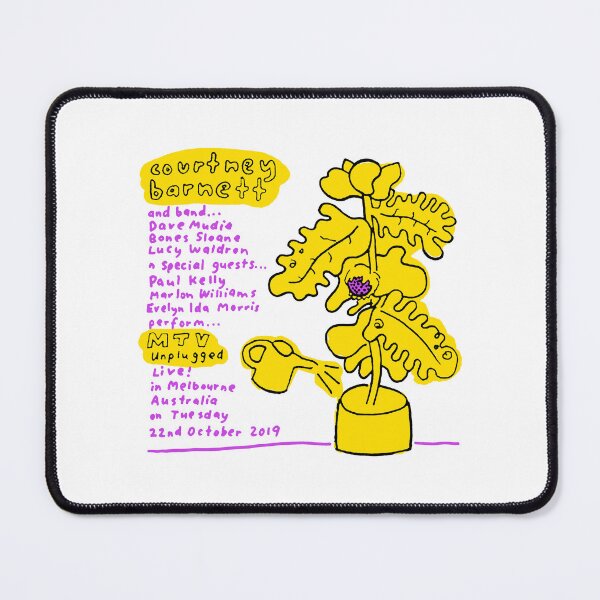 courtney
barnett
and band...
Dave Mudie
Bones Sloane
Lucy Waldron
n special guests...
Paul Kelly
Marlon Williams
Evelyn Ida Morris
perform...
MTV
unplugged
Live!
in Melbourne
Australia
on Tuesday
22nd October 2019